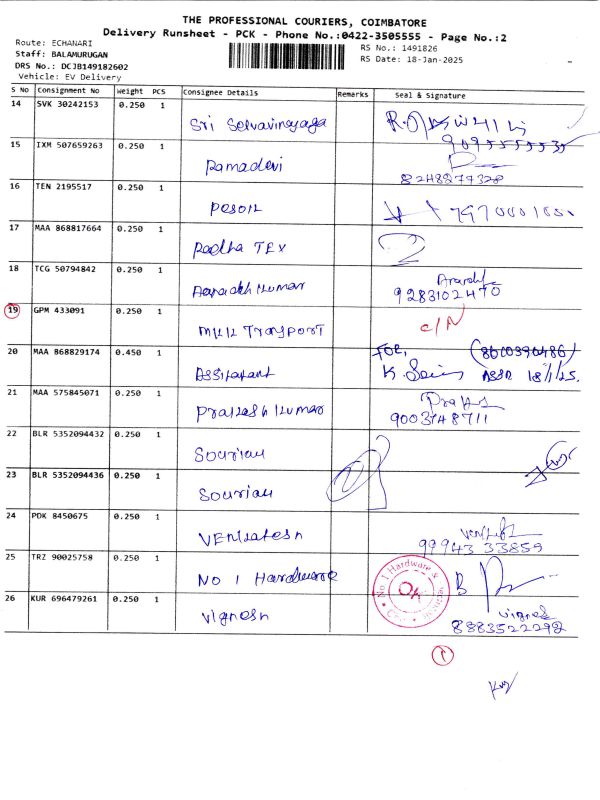 THE PROFESSIONAL COURIERS, COIMBATORE
Delivery Runsheet - PCK - Phone No.:0422-3505555 - Page No.:2
Route: ECHANARI
Staff: BALAMURUGAN
DRS No.: DCJB149182602
Vehicle: EV Delivery
RS No.: 1491826
RS Date: 18-Jan-2025
S No Consignment No Weight PCS Consignee Details Remarks Seal & Signature
14 SVK 30242153 0.250 1 Sri Selvavinayaga
15 IXM 507659263 0.250 1 Ramadevi
8248877328
16 TEN 2195517 0.250 1
17 MAA 868817664 0.250 1 Radha TEX
18 TCG 50794842 0.250 1 Aaradhkumar
9283102470
19 GPM 433091 0.250 1 Transport C/N
20 MAA 868829174 0.450 1 FOR, (8600390486)
K. 18/1/25.
21 MAA 575845071 0.250 1 Prakash Kumar
9003748711
22 BLR 5352094432 0.250 1 Souriau
23 BLR 5352094436 0.250 1 Souriau
24 PDK 8450675 0.250 1 Venkatesh
99943 33859
25 TRZ 90025758 0.250 1 No 1 Hardware No 1 Hardware &
26 KUR 696479261 0.250 1 Vignesh Vignesh
8883522292